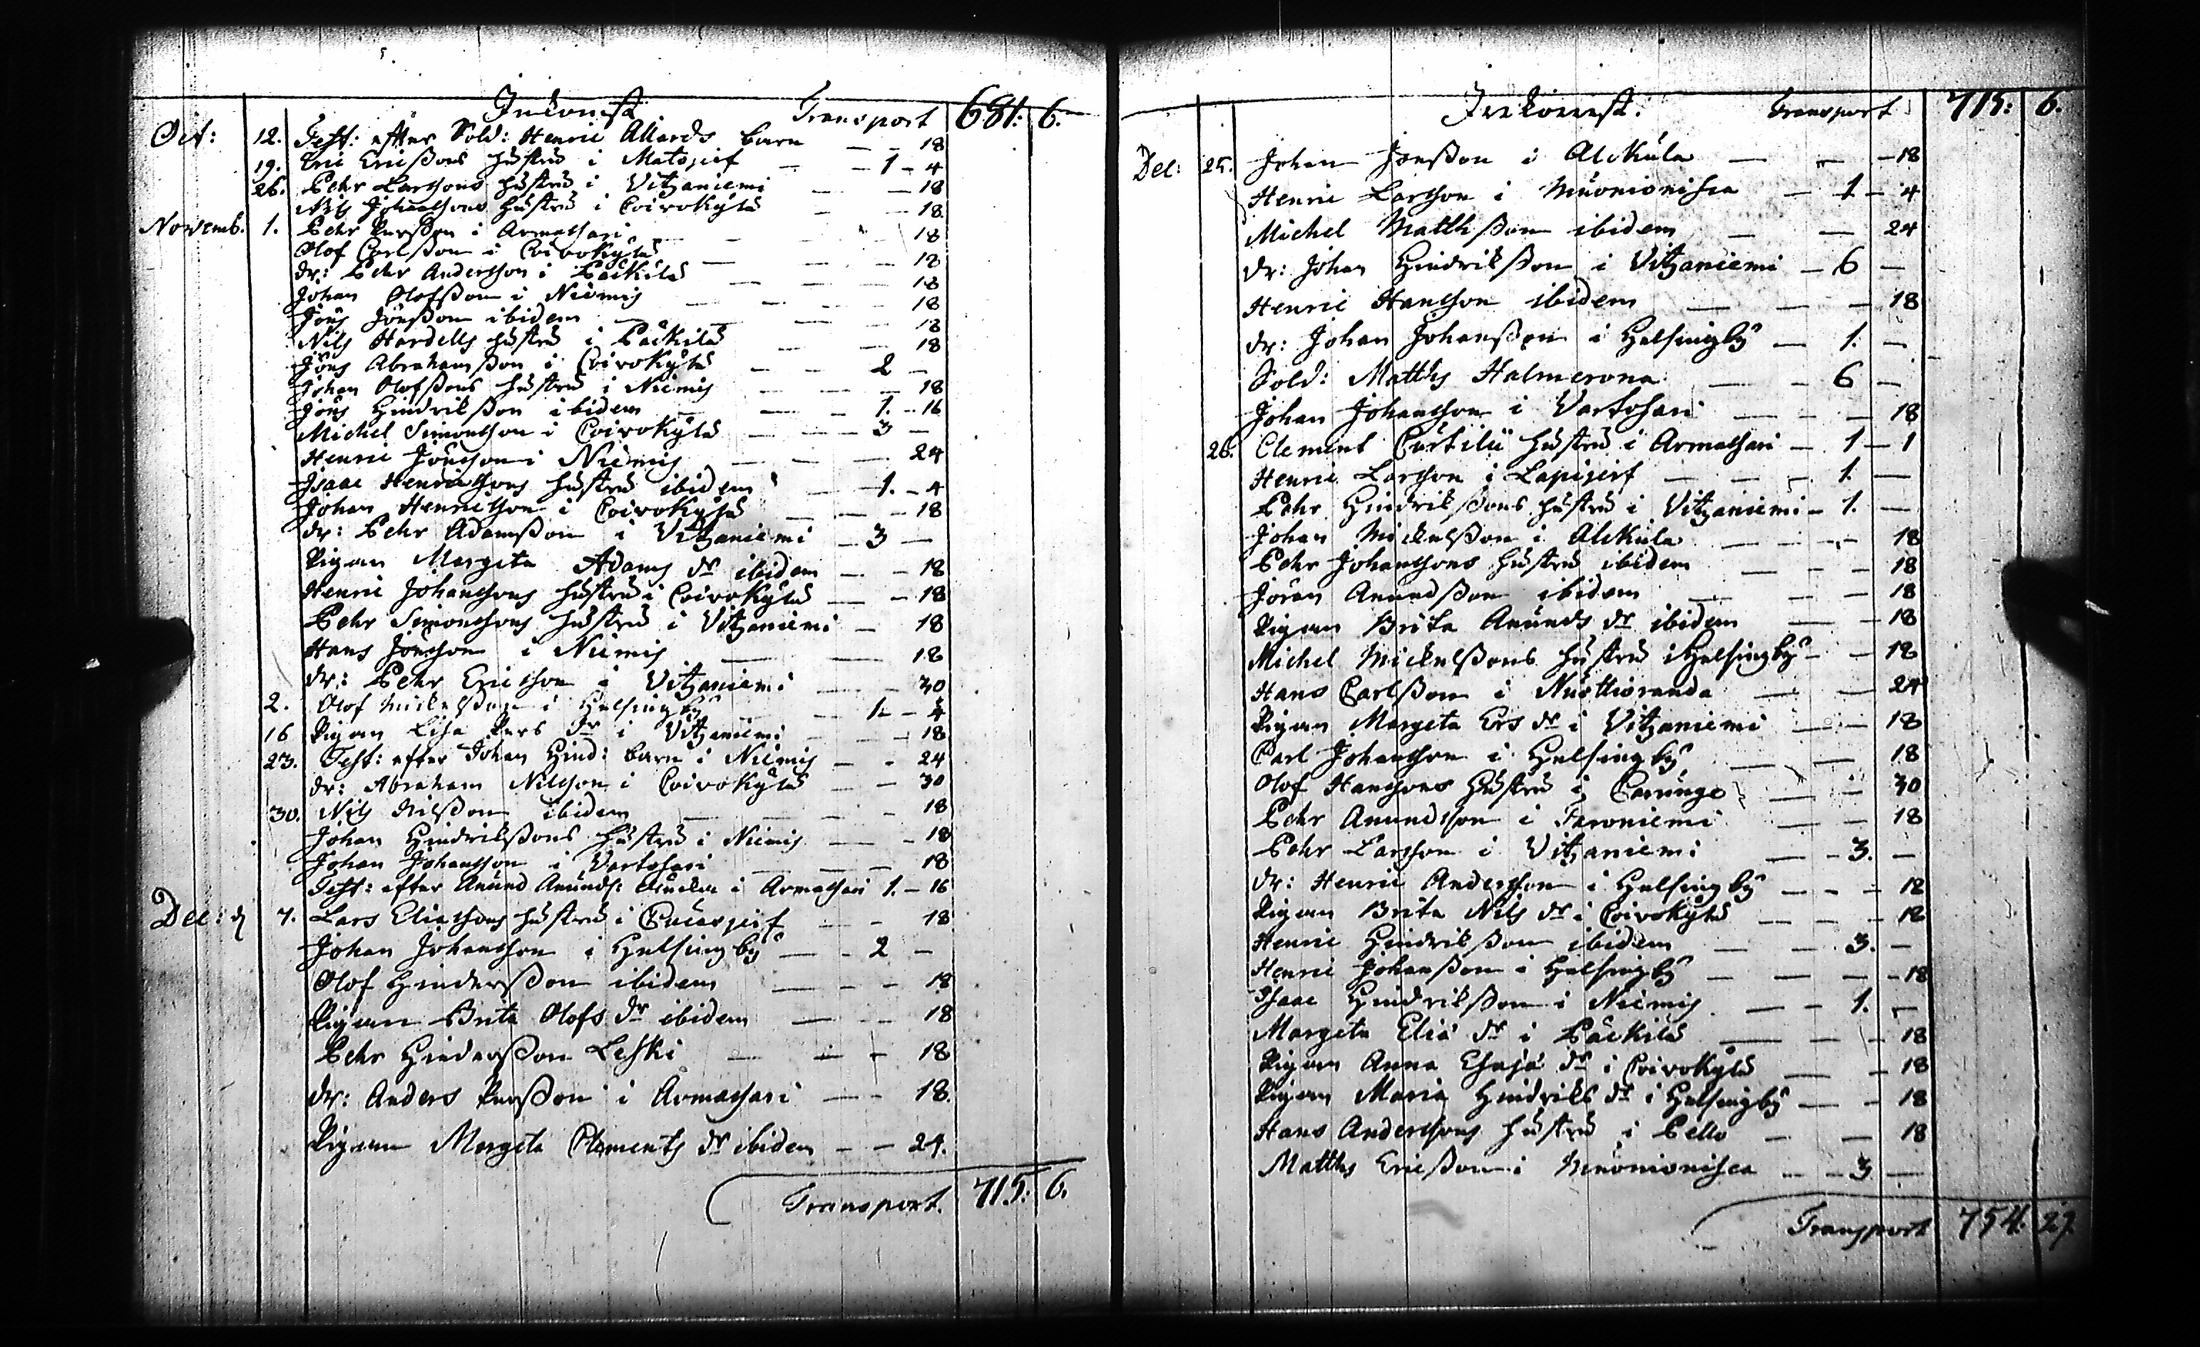 Inkomst. Transport 681: 6.
Oct: 12. Test: efter Sold: Henric Allards barn — — 18
19. Eric Erichssons hustru i Matojerf — — 1 — 4
26. Pehr Larssons hustru i Vitzaniemi — — 18
Nils Johanssons hustru i Coivokylä — — 18
Novemb. 1. Pehr Persson i Armassari — — 18
Olof Carlsson i Coivokylä — — 18
dr: Pehr Andersson i Päckilä — — 18
Johan Olofsson i Niemis — — 18
Jöns Jönsson ibidem — — 18
Nils Hardells hustru i Päckilä — — 18
Jöns Abrahamsson i Coivokylä — — 2 —
Johan Olofssons hustru i Niemis — — 18
Jöns Hindriksson ibidem — — 1. — 16
Michel Simonsson i Coivokylä — — 3 —
Henric Jönsson i Niemis — — 24
Isaac Henrichsons hustru ibidem — — 1. — 4
Johan Henricsson i Coivokylä — — 18
dr: Pehr Adamsson i Vitzaniemi — 3 —
Pigan Margeta Adams dr ibidem — — 18
Henric Johanssons hustru i Coivokylä — — 18
Pehr Simonssons hustru i Vitzaniemi — 18
Hans Jönsson i Niemis — — 18
dr: Pehr Ericsson i Vitzaniemi — — 30
2. Olof Mickelsson i Helsingby — — 1. — 4
16 Pigan Lisa Pers dr i Vitzaniemi — — 18
23. Test: efter Johan Hind: barn i Niemis — — 24
dr: Abraham Nilsson i Coivokylä — — 30
30. Nils Nilsson ibidem — — 18
Johan Hindrikssons hustru i Niemis — — 18
Johan Johansson i Vartosari — — 18
Test: efter Anund Anunds: Encka i Armassari 1. — 16
Dec: d 7. Lars Eliassons hustru i — — 18
Johan Johansson i Helsingby — — 2 —
Olof Hindersson ibidem — — 18
Pigan Brita Olofs dr ibidem — — 18
Pehr Hindersson Leski — — 18
dr: Anders Persson i Armassari — — 18.
Pigan Margeta Clements dr ibidem — — 24.
Transport. 715: 6.
Inkomst. Transport 715: 6.
Dec: 25. Johan Jönsson i Alckula — — 18
Henric Larsson i Muonionisca — 1 — 4
Michel Matthsson ibidem — — 24
dr: Johan Hindriksson i Vitzaniemi — 6 —
Henric Hansson ibidem — — 18
dr: Johan Johansson i Helsingby — 1. —
Sold: Matths Halmerona — — 6 —
Johan Johansson i Vartosari — — 18
26. Clement Curtilii hustru i Armassari — 1 — 1
Henric Larsson i Lapijerf — — 1. —
Pehr Hindrikssons hustru i Vitzaniemi — 1. —
Johan Mickelsson i Alckula — — 18
Pehr Johanssons hustru ibidem — — 18
Jöran Anundsson ibidem — — 18
Pigan Brita Anunds dr ibidem — — 18
Michel Mickelssons hustru i Helsingby — — 18
Hans Carlsson i Nuottioranda — — 24
Pigan Margeta Ers dr i Vitzaniemi — — 18
Carl Johansson i Helsingby — — 18
Olof Hanssons hustru i — — 30
Pehr Anundsson i Taroniemi — — 18
Pehr Larsson i Vitzaniemi — — 3. —
dr: Henric Andersson i Helsingby — — 12
Pigan Brita Nils dr i Coivokylä — — 12
Henric Hindriksson ibidem — — 3. —
Henric Johansson i Helsingby — — 18
Isaac Hindriksson i Niemis — — 1. —
Margeta Eliæ dr i Päckilä — — 18
Pigan Anna Esajæ dr i Coivokylä — — 18
Pigan Maria Hindriks dr i Helsingby — — 18
Hans Anderssons hustru i Pello — — 18
Matths Ericsson i Muonionisca — — 3 —
Transport 754. 29.